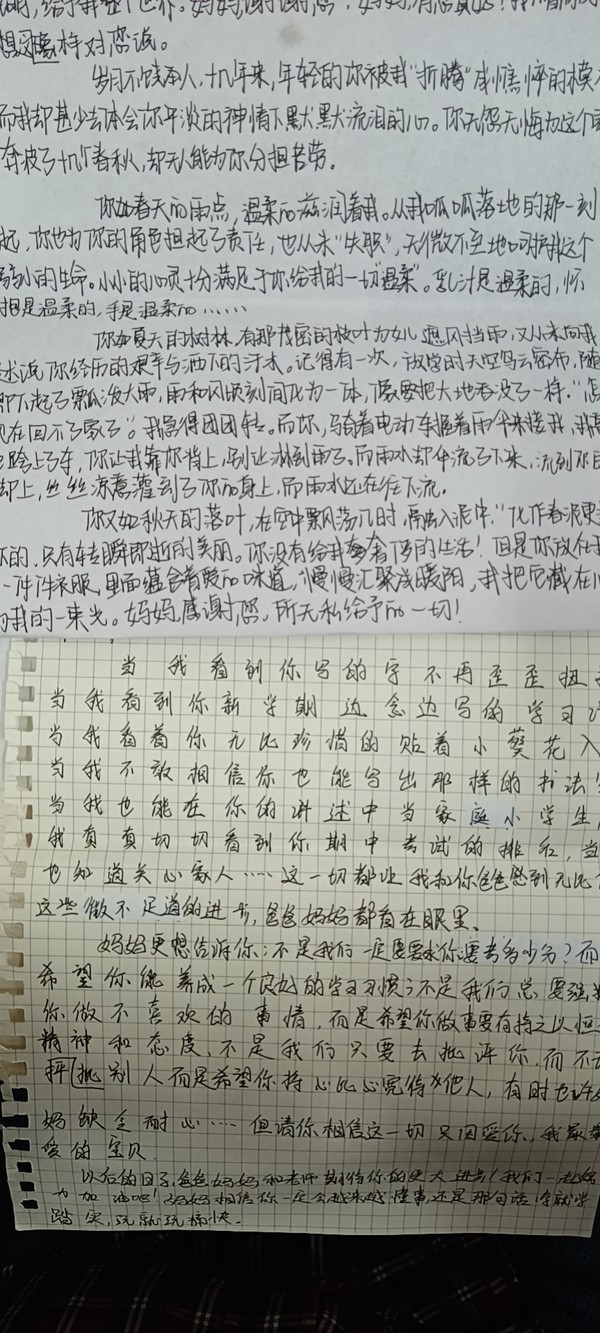 说明,给予我整个世界。妈妈,谢谢您!妈妈,有您真好!
想这样对您说。
岁月不饶人,十几年来,年轻的你被我“折腾”成憔悴的模
而我却甚少去体会你平淡的神情下默默流泪的心。你无怨无悔为这个
奔波了十几个春秋,却无人能为你分担苦劳。
你如春天的雨点,温柔的滋润着我。从我呱呱落地的那一刻
起,你也为你的角色担起了责任,也从未“失职”,无微不至地呵护我这个
弱小的生命。小小的心灵十分满足于你给我的一切“温柔”。乳汁是温柔的,怀
抱是温柔的,手是温柔的……
你如夏天的树林,有那茂密的枝叶为女儿遮风挡雨,又从未向我
述说你经历的艰辛与洒下的汗水。记得有一次,放学时天空乌云密布,随
即下起了瓢泼大雨,雨和风顷刻间化为一体,像要把大地吞没了一样。“
现在回不了家了”。我急得团团转。而你,骑着电动车握着雨伞来接我,我
跨上了车,你让我靠你背上,别让淋到雨了。而雨水却伞流了下来,流到你
却上,丝丝凉意落到了你的身上,而雨水还在往下流。
你又如秋天的落叶,在空中飘荡几时,再融入泥中。“化作春泥更
的,只有转瞬即逝的美丽。你没有给我奢侈的生活!但是你放在
一件件衣服,里面蕴含着爱的味道,慢慢汇聚成暖阳,我把它藏在
为我的一束光。妈妈,感谢您,所无私给予的一切!
当我看到你写的字不再歪歪扭
当我看到你新学期边念边写的学习
当我看着你无比珍惜的贴着小葵花入
当我不敢相信你也能写出那样的书法
当我也能在你的讲述中当家庭小学生,
我真真切切看到你期中考试的排名,当
也知道关心家人……这一切都让我和你爸爸感到无比
这些微不足道的进步,爸爸妈妈都看在眼里、
妈妈更想告诉你:不是我们一定要要求你要考多少分?而
希望你能养成一个良好的学习习惯;不是我们总要强
你做不喜欢的事情,而是希望你做事要有持之以恒
精神和态度,不是我们只要去批评你,而不
抨批别人而是希望你将心比心宽待他人,有时也许
妈缺乏耐心……但请你相信这一切只因爱你、我最
爱的宝贝、
以后的日子,爸爸妈妈和老师期待你的更大进步!我们一起
加油吧!妈妈相信你一定会越来越懂事,还是那句话学就学
踏实,玩就玩痛快。